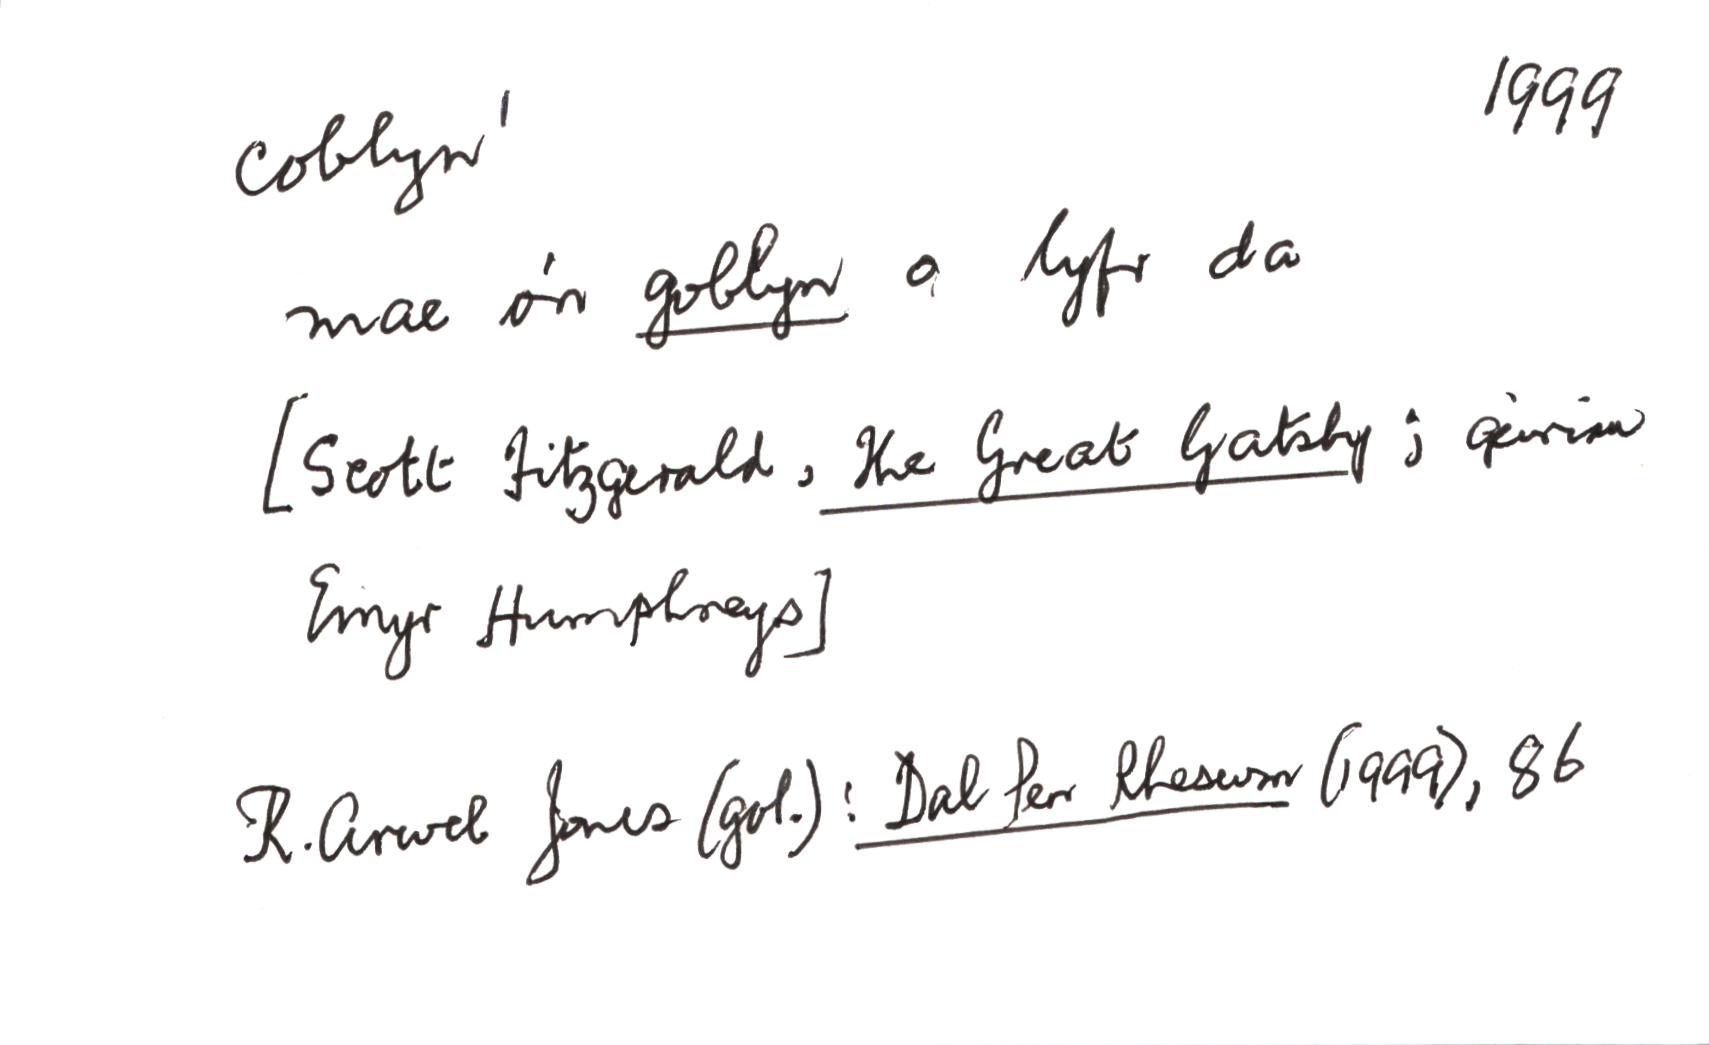 coblyn¹ 1999
mae o'n goblyn o lyfr da
[Scott Fitzgerald, The Great Gatsby; geiriau
Emyr Humphreys]
R. Arwel Jones (gol.): Dal Pen Rheswm (1999), 86